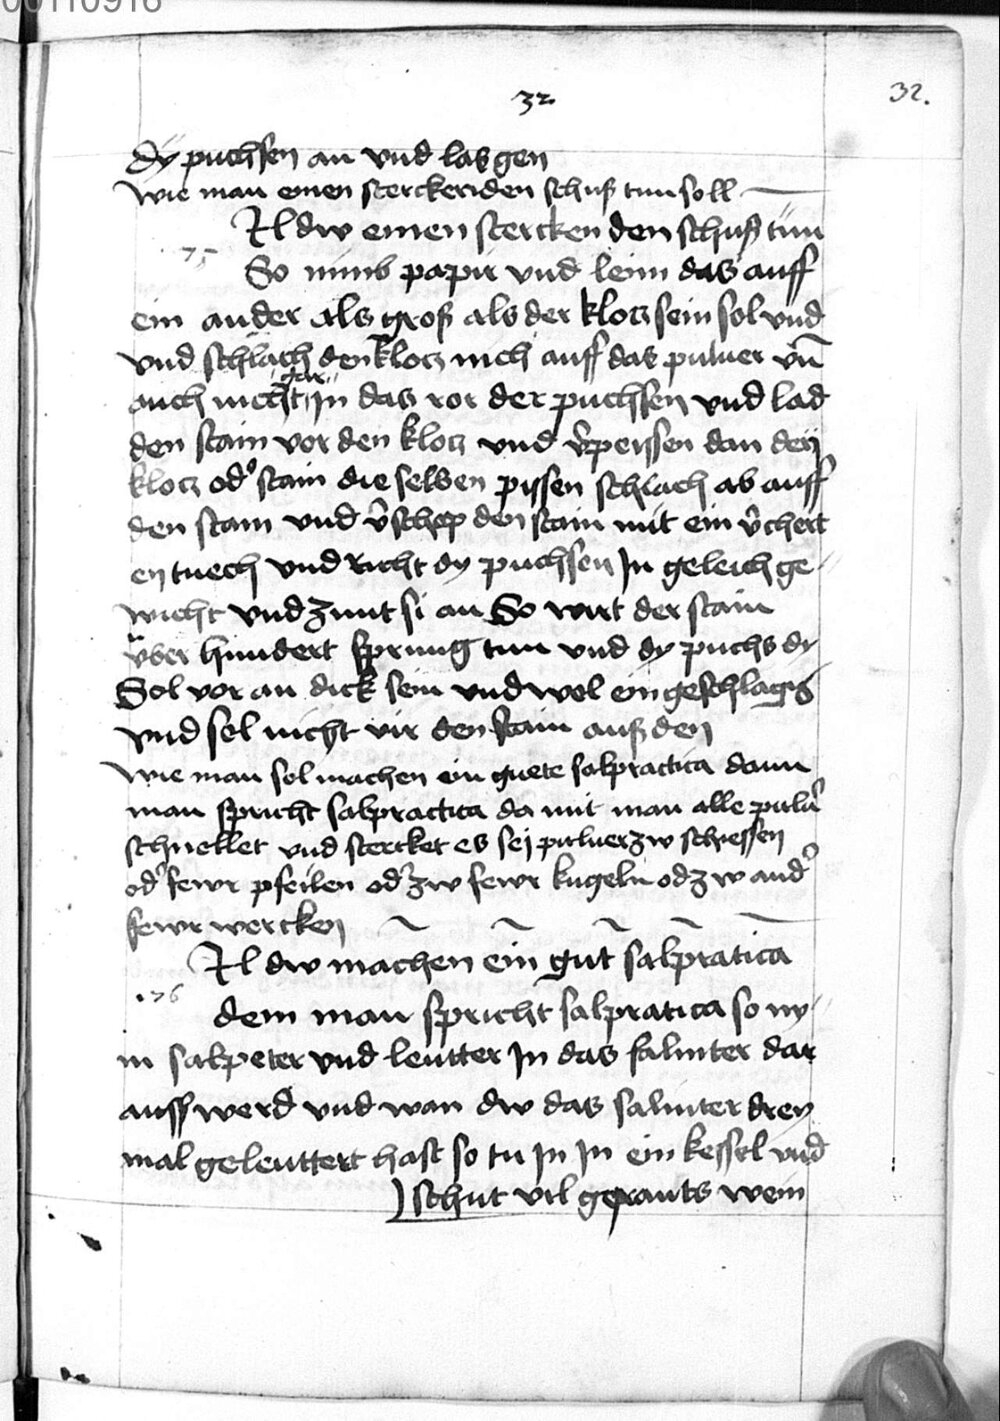 00110916
32
32.
dy puchsen an vnd las gen
wie man einen sterckenden schuß tun soll
Il dw einen stercken den schuß tun
75
So nimb papir vnd leim das auff
ein ander als groß als der klocz sein sol vnd
vnd schlach den klocz nich auff das puluer vn̄
gar
auch nicht in das ror der puchsen vnd lad
den stain vor den klocz vnd v̊peissen dan den
klocz od' stain die selben pissen schlach ab auff
den stain vnd v̊schop den stain mit ein v̊chert
en tuech vnd richt dy puchsen In geleich ge
wicht vnd zunt si an So wirt der stain
vber hundert sprung tun vnd dy puchs dy
Sol vor an dick sein vnd wol ein geschlagn
vnd sol nicht vir den stain auß den
wie man sol machen ein guete salpractica dann
man spricht salpractica da mit man alle pulu'
schnellet vnd stercket es sej puluer zw schiessen
od' fewr pfeilen od' zw fewr kugeln od zw and'
fewr wercken
Il dw machen ein gut salpratica
.76
dem man spricht salpratica so ny
m salpeter vnd leutter In das salniter dar
auss werd vnd wan dw das salniter drey
mal geleuttert hast so tu In In ein kessel vnd
schut vil geprants wein